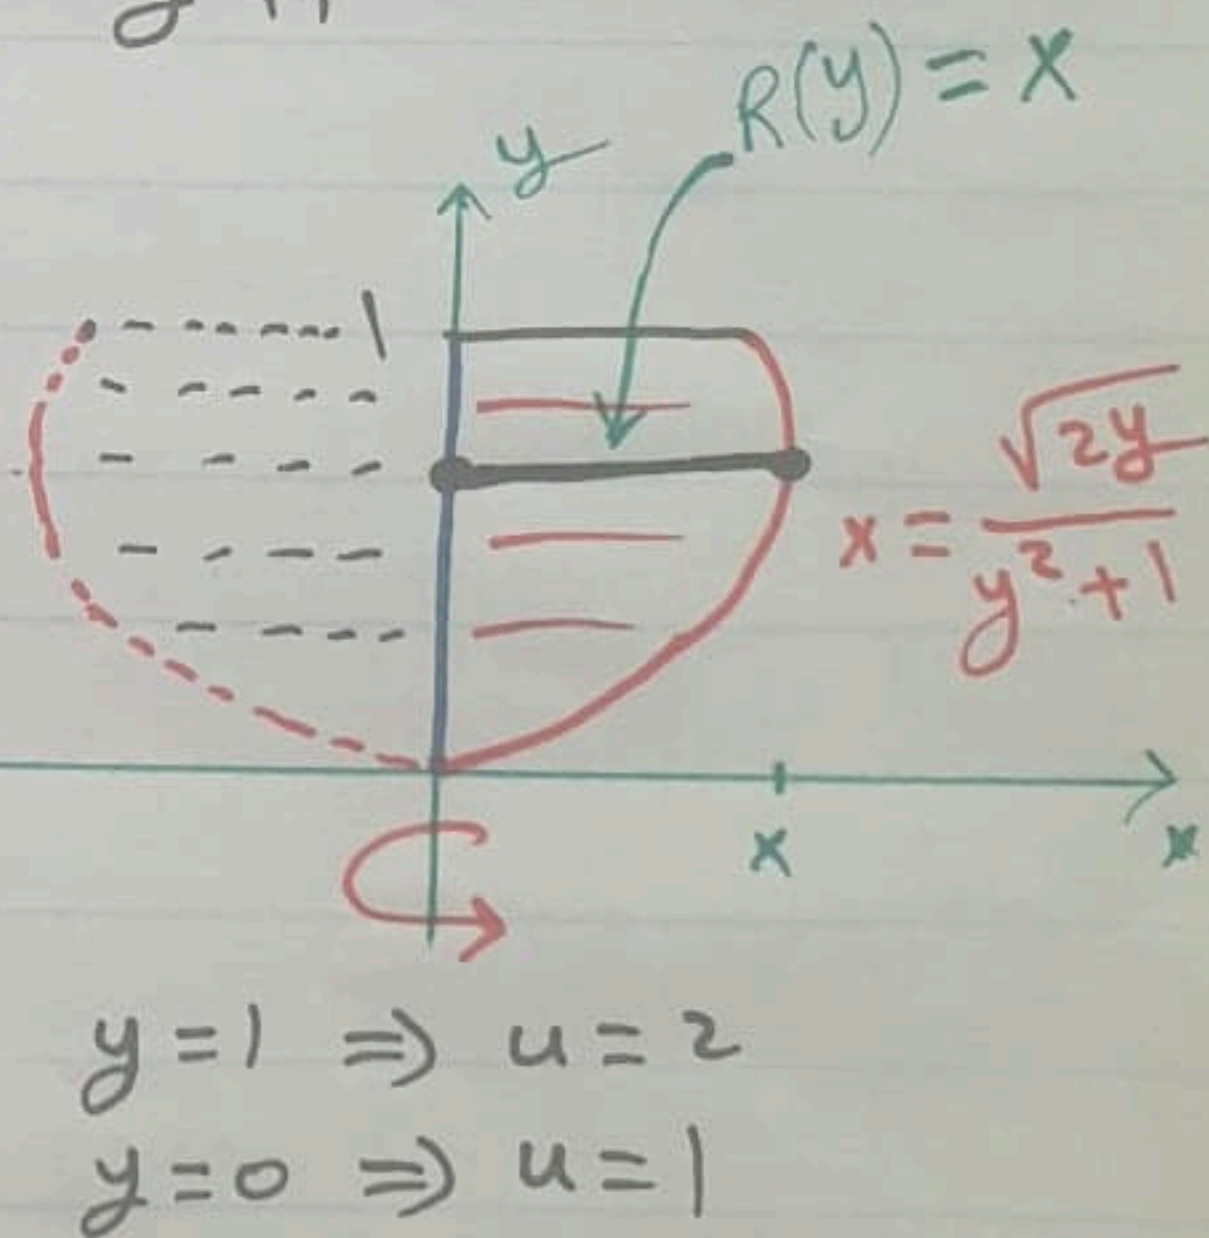 R(y) = x
y
1
x = √2y / y² + 1
x
x
y = 1 ⇒ u = 2
y = 0 ⇒ u = 1